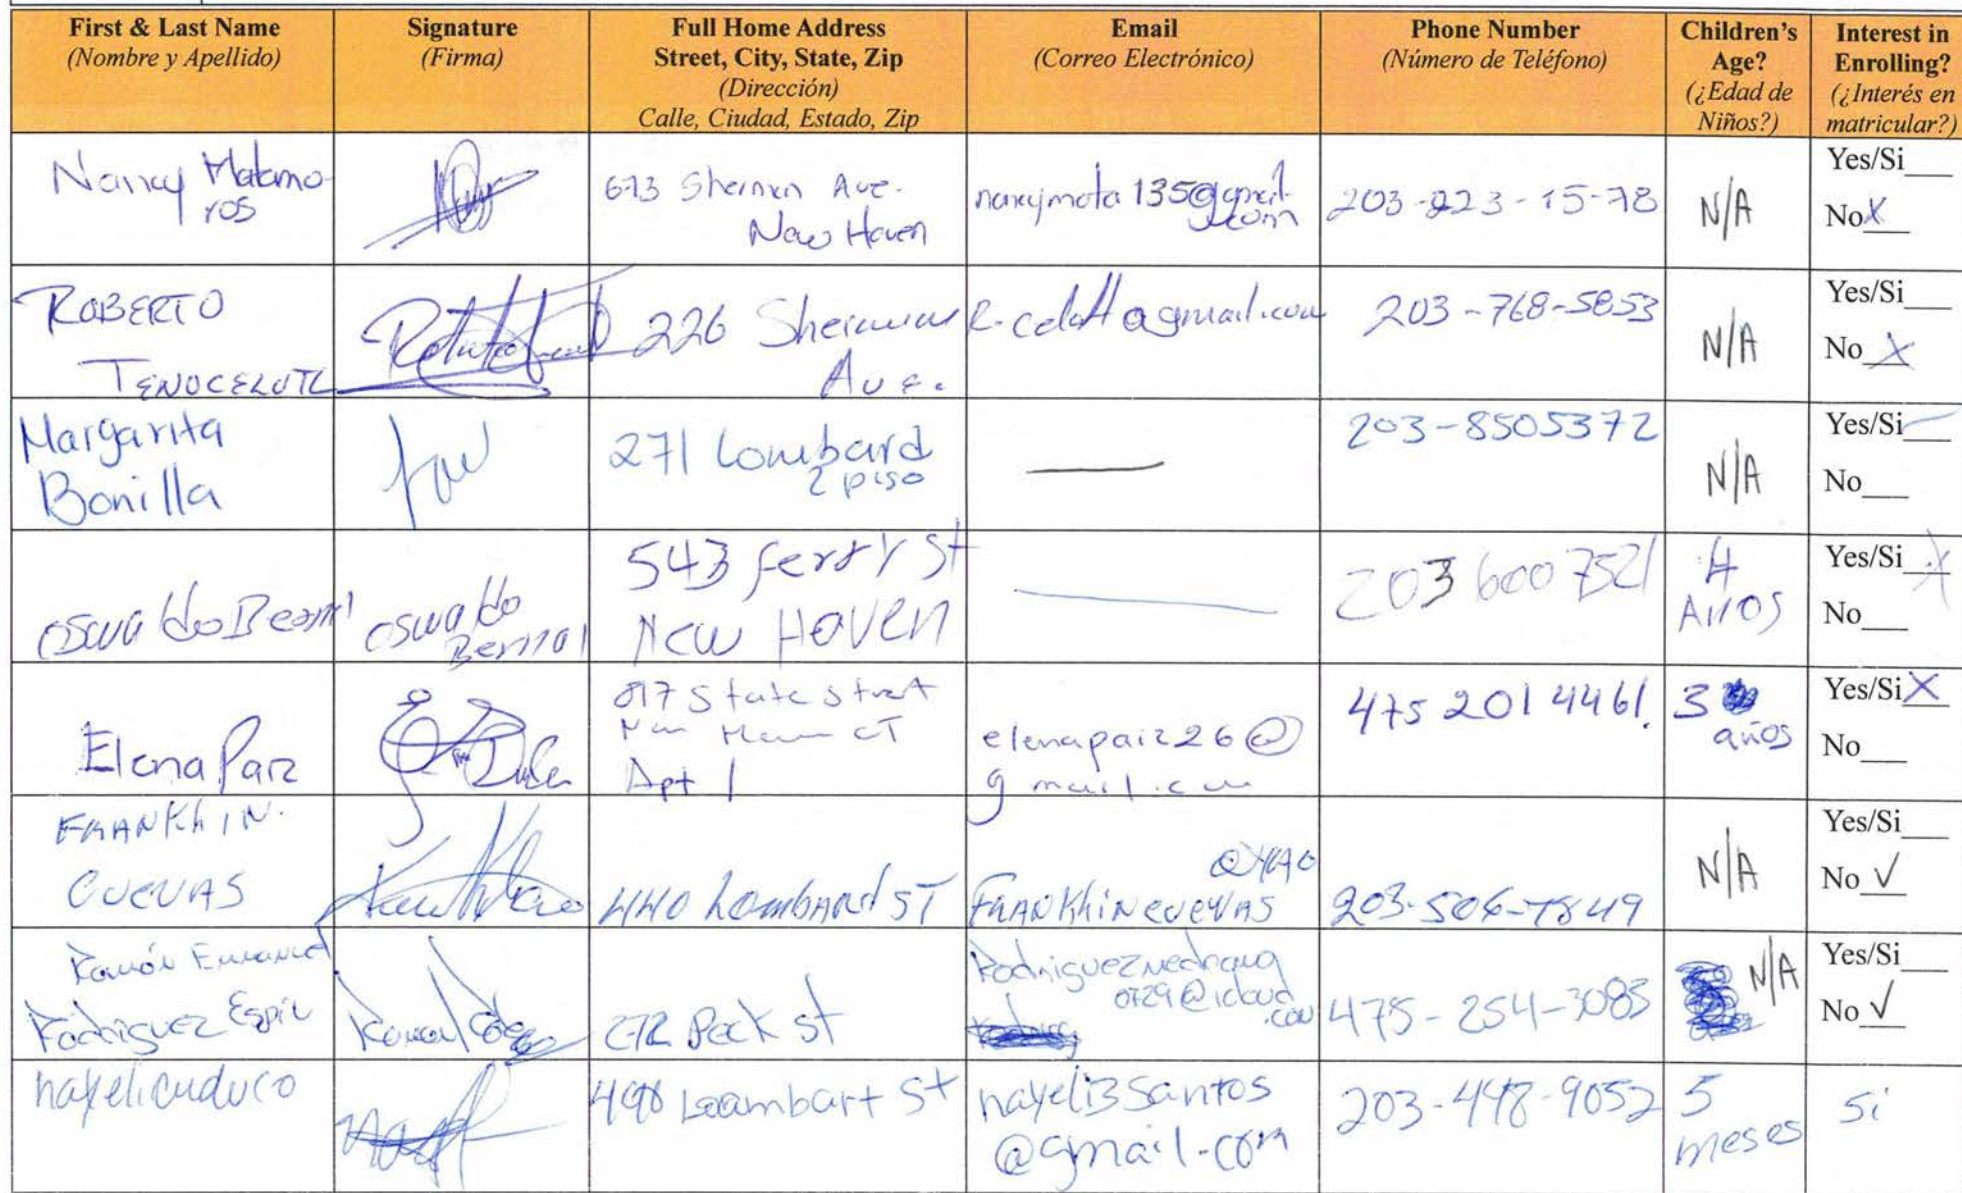 First & Last Name
(Nombre y Apellido)
Signature
(Firma)
Full Home Address
Street, City, State, Zip
(Dirección)
Calle, Ciudad, Estado, Zip
Email
(Correo Electrónico)
Phone Number
(Número de Teléfono)
Children's
Age?
(¿Edad de
Niños?)
Interest in
Enrolling?
(¿Interés en
matricular?)
Nancy Matamo
ros
Sherman Ave.
New Haven
203-223-15-78
N/A
Yes/Si___
No X
ROBERTO
TENOCELOTL
226 Sherman
Ave.
203-768-5853
N/A
Yes/Si___
No X
Margarita
Bonilla
271 Lombard
2 piso
203-8505372
N/A
Yes/Si
No___
oswaldo
oswaldo
Bernal
543 ferry St
New Haven
203 600 7521
Años
Yes/Si X
No___
Elena Paiz
817 State Street
New Haven CT
Apt 1
elenapaiz26@
gmail.com
475 201 4461.
3
años
Yes/Si X
No___
FRANKLIN
CUEVAS
440 Lombard ST
FRANKLINCUEVAS
203-506-7849
N/A
Yes/Si___
No ✓
Ramón Emanuel
Rodriguez Espin
272 Peck st
0729@icloud
.com
475-254-3083
N/A
Yes/Si___
No ✓
nayeli cuduco
Loambart St
nayeli3santos
@gmail.com
203-448-9052
5
meses
si